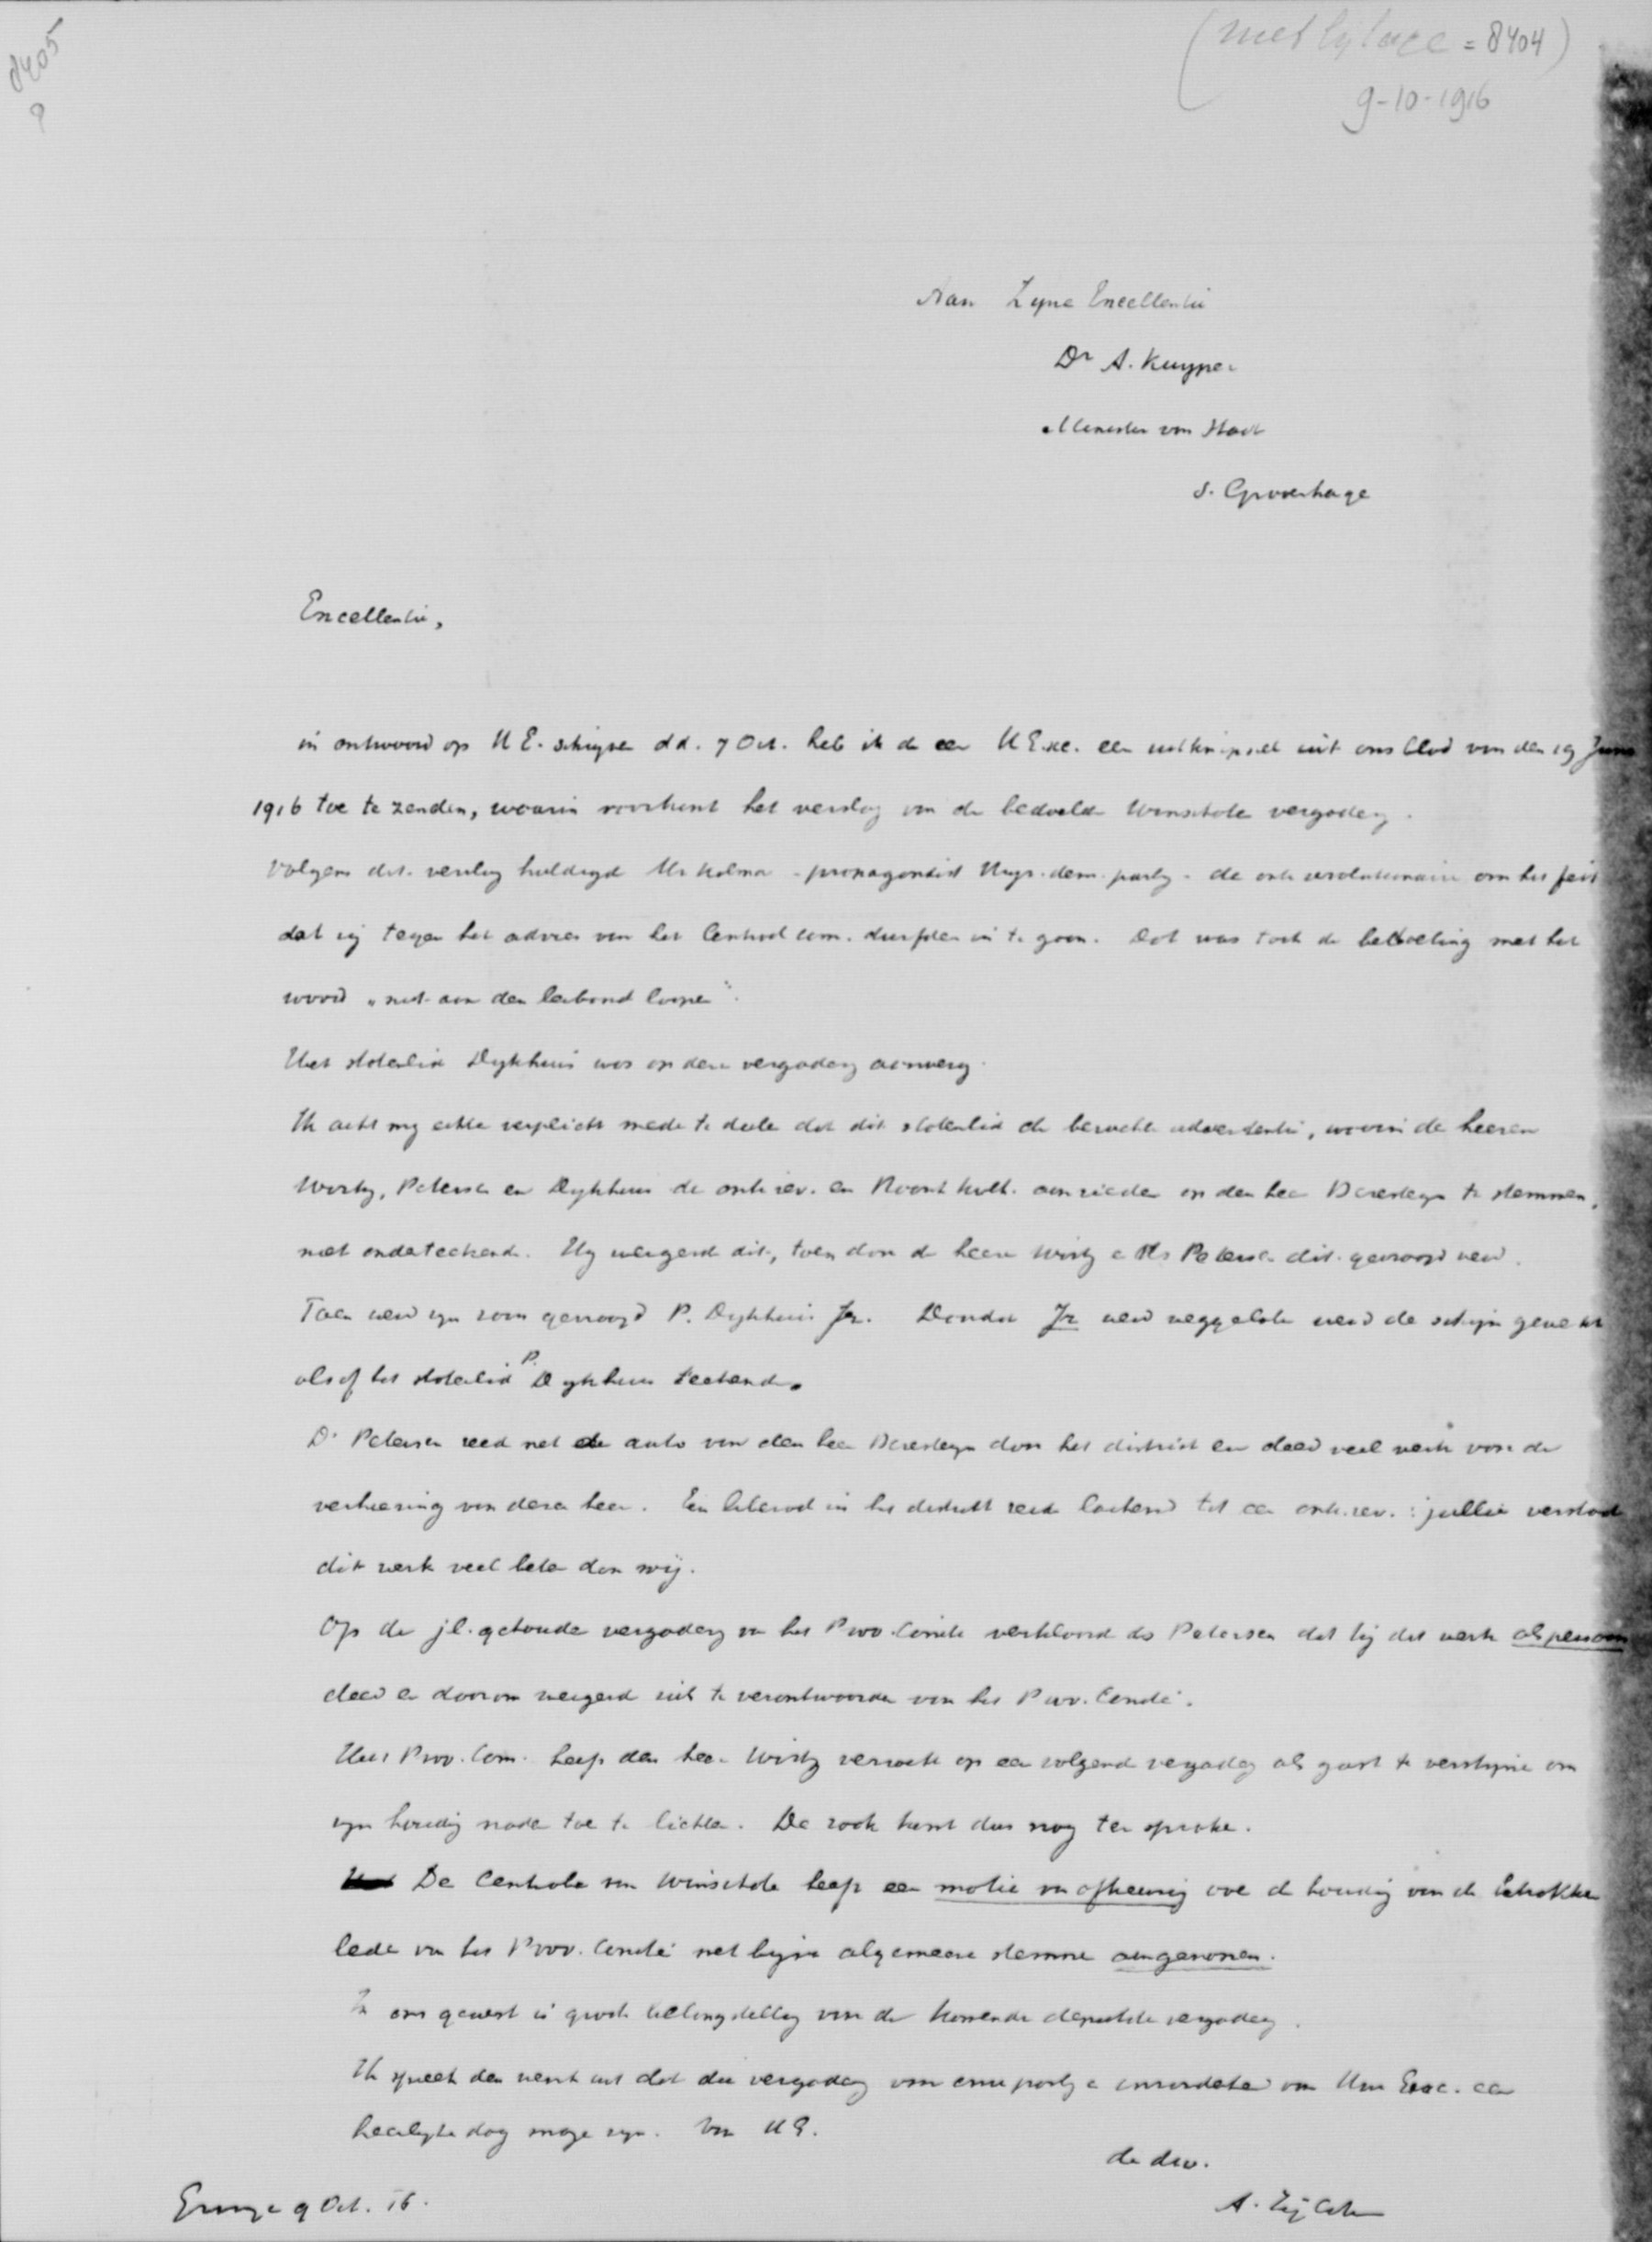 8405
(met bijlage = 8404)
9-10-1916
Aan Zyne Excellentie
Dr A. Kuyper
Minister van Staat
s. Gravenhage
Excellentie,
in antwoord op U E. schryven d d. 7 Oct. heb ik de eer U Exc. een uitknipsel uit ons blad van den 19 Juni
1916 toe te zenden, waarin voorkomt het verslag van de bedoelde Winschoter vergadering.
Volgens dit verslag huldigd Mr Kolma - propagandist Vryz. dem. party - de anti revolutionairen om het feit
dat zij tegen het advies van het Centraal Com. durfden in te gaan. Dat was toch de bedoeling met het
woord "niet aan den leiband loopen".
Het statenlid Dykhuis was op deze vergadering aanwezig.
Ik acht my echter verplicht mede te deelen dat dit statenlid de beruchte advertentie, waarin de heeren
Wirtz, Petersen en Dykhuis de anti rev. en Roomsch Kath. aanrieden op den heer Dresselhuys te stemmen,
niet onderteekende. Hy weigerde dit, toen door de heeren Wirtz en Ds Petersen dit gevraagd werd.
Toen werd zyn zoon gevraagd P. Dykhuis Jr. Doordat Jr werd weggelaten werd de schijn gewekt
alsof het statenlid P. Dykhuis teekende.
Ds Petersen reed met de auto van den heer door het district en deed veel werk voor de
verkiezing van dezen heer. Een liberaal in het district zeide lachend tot een anti.rev. : jullie verstaat
dit werk veel beter dan wij.
Op de jl. gehouden vergadering van het Prov. Comité verklaarde ds Petersen dat hij dit werk als persoon
deed en daarom weigerde zich te verantwoorden voor het Prov. Comité.
Het Prov. Com. heeft den heer Wirtz verzocht op een volgende vergadering als gast te verschynen om
zyn houding nader toe te lichten. De zaak komt dus nog ter sprake.
De Centrale van Winschoten heeft een motie van afkeuring over de houding van de betrokken
leden van het Prov. Comité met byna algemeene stemmen aangenomen.
In ons gewest is groote belangstelling voor de komende deputaten vergadering.
Ik spreek den wensch uit dat die vergadering voor onze party en inzonderheid voor Uwe Exc. een
heerlyke dag moge zyn. Van U E.
de dw.
A. Zijlstra
Groningen 9 Oct. 16.